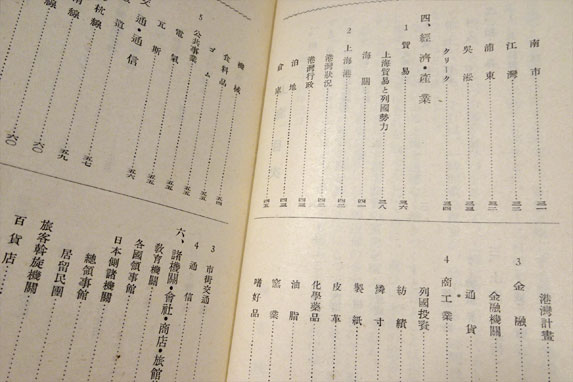 南市
江灣
浦東
吳淞
クリーク 三四
四、經濟・産業
1 貿易 三六
上海貿易と列國勢力 三八
海關 四一
2 上海港
港灣狀況
港灣行政
泊地
倉庫
港灣計畫
3 金融
金融機關
通貨
4 商工業
列國投資
紡績
燐寸
製紙
皮革
化學藥品
油脂
窯業
嗜好品
機械 五四
食料品 五五
ゴム 五五
5 公共事業
電氣 五五
瓦斯 五五
道 五六
交通・通信
線 五七
線 五九
線 六〇
六〇
3 市街交通
4 通信
六、諸機關・會社・商店・旅館
教育機關
各國領事館
日本側諸機關
總領事館
居留民團
旅客斡旋機關
百貨店